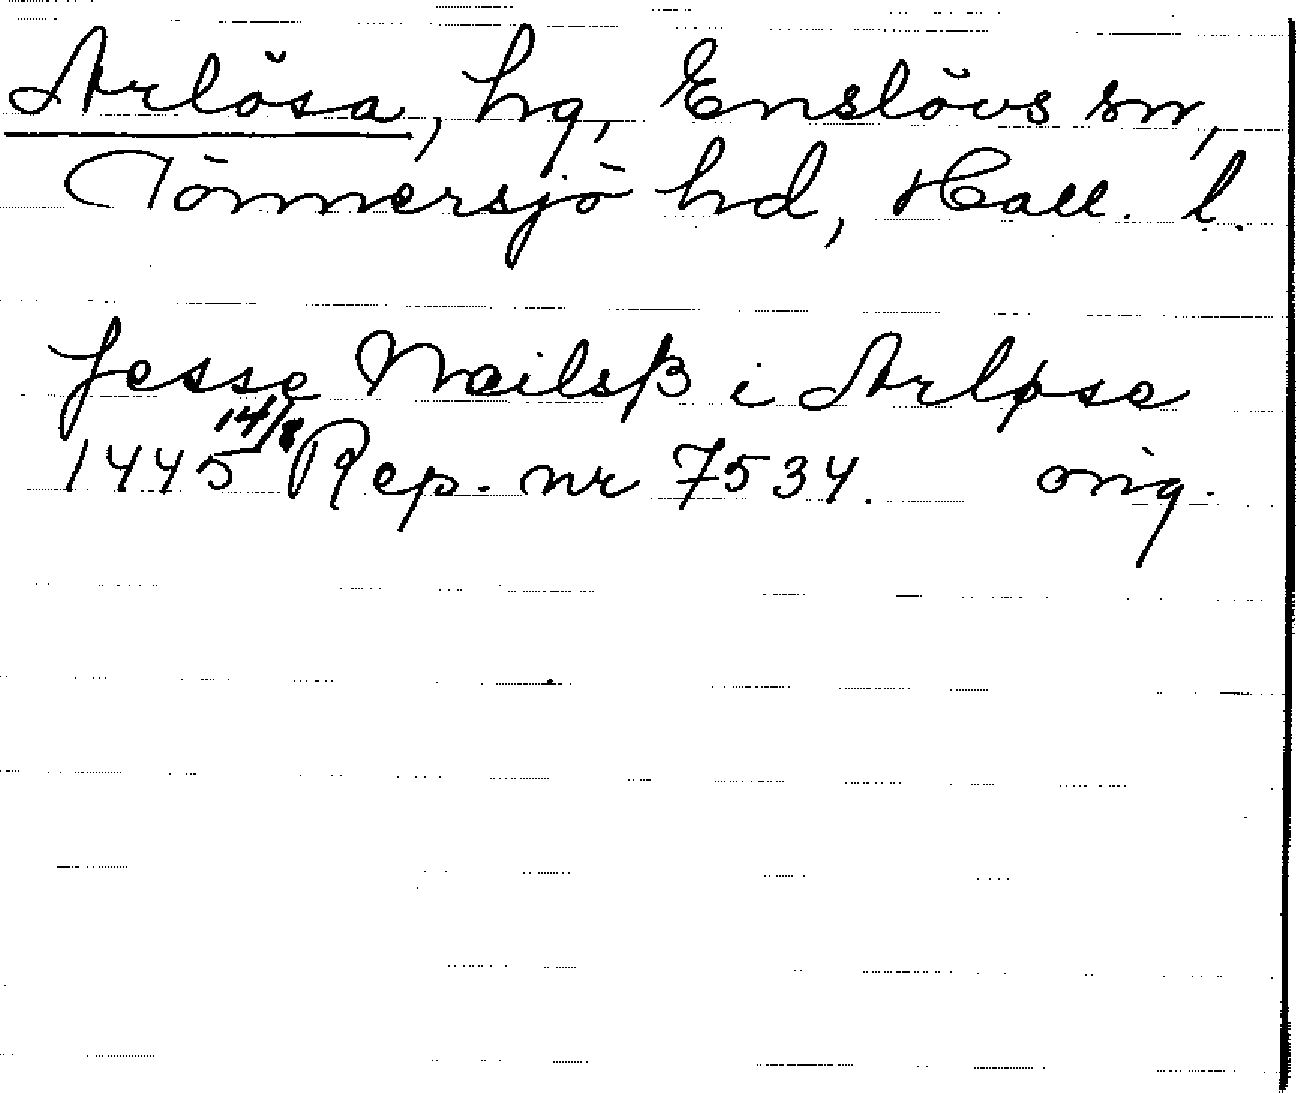 Arlösa, hg, Enslövs sn,
Tönnersjö hd, Hall. l.
Jesse Neilsß i Arløse
1445 14/8 Rep. nr 7534. orig.